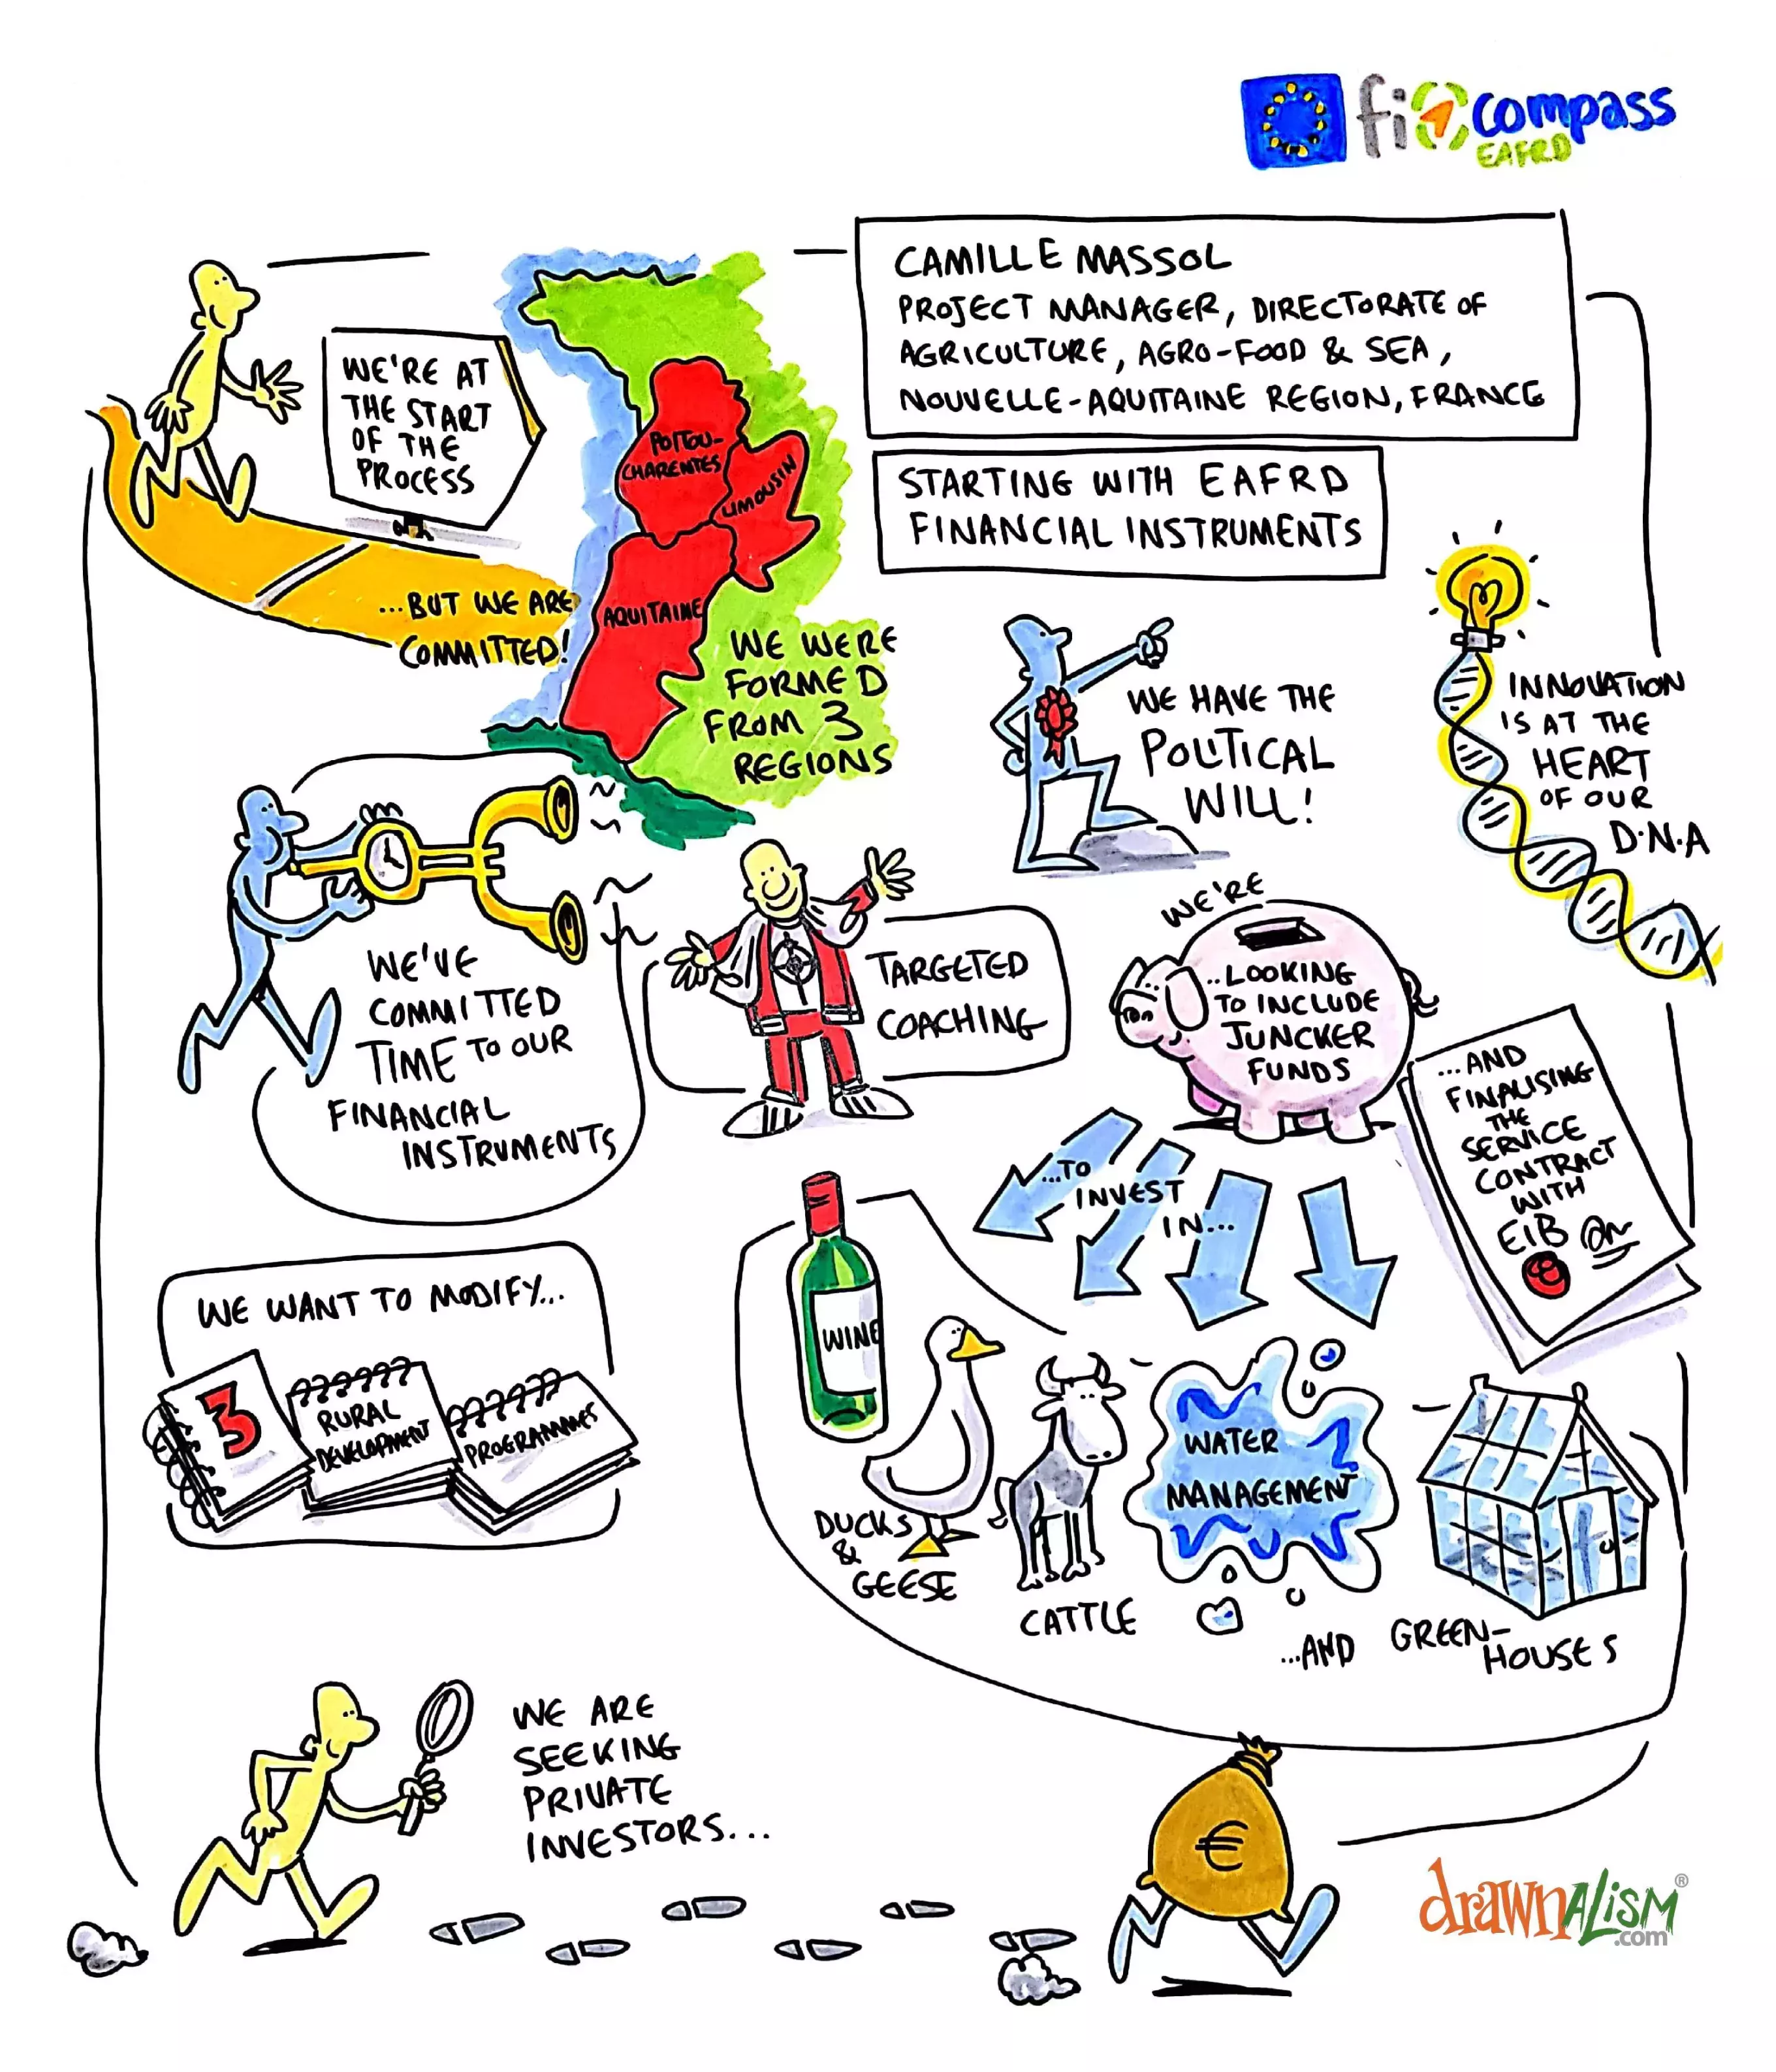 fi compass
EAFRD
CAMILLE MASSOL
PROJECT MANAGER, DIRECTORATE OF
AGRICULTURE, AGRO-FOOD & SEA,
NOUVELLE-AQUITAINE REGION, FRANCE
STARTING WITH EAFRD
FINANCIAL INSTRUMENTS
WE'RE AT
THE START
OF THE
PROCESS
...BUT WE ARE
COMMITTED!
POITOU-
CHARENTES
LIMOUSIN
AQUITAINE
WE WERE
FORMED
FROM 3
REGIONS
WE HAVE THE
POLITICAL
WILL!
INNOVATION
IS AT THE
HEART
OF OUR
D.N.A
WE'VE
COMMITTED
TIME TO OUR
FINANCIAL
INSTRUMENTS
TARGETED
COACHING
WE'RE
...LOOKING
TO INCLUDE
JUNCKER
FUNDS
...AND
FINALISING
THE
SERVICE
CONTRACT
WITH
EIB
...TO
INVEST
IN...
WE WANT TO MODIFY...
3
RURAL
DEVELOPMENT
PROGRAMMES
WINE
DUCKS
&
GEESE
CATTLE
WATER
MANAGEMENT
...AND GREEN-
HOUSES
WE ARE
SEEKING
PRIVATE
INVESTORS...
€
drawnalism®
.com